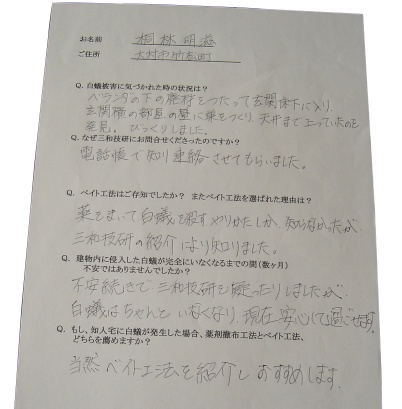 お名前 桐林明滋
ご住所 大村市竹松町
Q. 白蟻被害に気づかれた時の状況は?
ベランダの下の廃材をつたって玄関床下に入り、
玄関横の部屋の壁に巣をつくり、天井まで上っていたのを
発見。びっくりしました。
Q. なぜ三和技研にお問合せくださったのですか?
電話帳で知り連絡させてもらいました。
Q. ベイト工法はご存知でしたか? またベイト工法を選ばれた理由は?
薬をまいて白蟻を殺すやりかたしか、知らなかったが、
三和技研の紹介により知りました。
Q. 建物内に侵入した白蟻が完全にいなくなるまでの間(数ヶ月)
不安ではありませんでしたか?
不安続きで三和技研を疑ったりしましたが、
白蟻はちゃんといなくなり、現在安心して過ごせます。
Q. もし、知人宅に白蟻が発生した場合、薬剤撒布工法とベイト工法、
どちらを薦めますか?
当然ベイト工法を紹介しおすすめします。